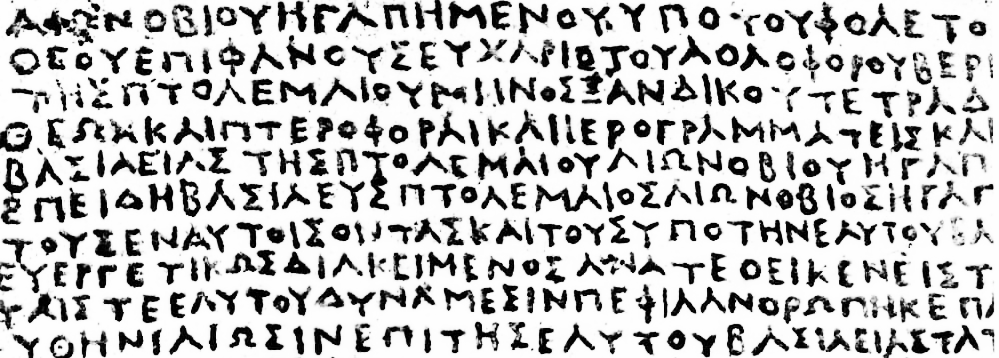 ΑΙΩΝΟΒΙΟΥΗΓΑΠΗΜΕΝΟΥΥΠΟΤΟΥΦΘΑΕΤΟ
ΘΕΟΥΕΠΙΦΑΝΟΥΣΕΥΧΑΡΙΣΤΟΥΑΘΛΟΦΟΡΟΥΒΕΡΕ
ΤΗΣΠΤΟΛΕΜΑΙΟΥΜΗΝΟΣΞΑΝΔΙΚΟΥΤΕΤΡΑΔ
ΘΕΩΝΚΑΙΠΤΕΡΟΦΟΡΑΙΚΑΙΙΕΡΟΓΡΑΜΜΑΤΕΙΣΚΑΙ
ΒΑΣΙΛΕΙΑΣΤΗΣΠΤΟΛΕΜΑΙΟΥΑΙΩΝΟΒΙΟΥΗΓΑΠ
ΕΠΕΙΔΗΒΑΣΙΛΕΥΣΠΤΟΛΕΜΑΙΟΣΑΙΩΝΟΒΙΟΣΗΓΑΠ
ΤΟΥΣΕΝΑΥΤΟΙΣΟΝΤΑΣΚΑΙΤΟΥΣΥΠΟΤΗΝΕΑΥΤΟΥΒΑ
ΕΥΕΡΓΕΤΙΚΩΣΔΙΑΚΕΙΜΕΝΟΣΑΝΑΤΕΘΕΙΚΕΝΕΙΣΤ
ΤΑΙΣΤΕΕΑΥΤΟΥΔΥΝΑΜΕΣΙΝΠΕΦΙΛΑΝΘΡΩΠΗΚΕΠΑ
ΕΥΘΗΝΙΑΙΩΣΙΝΕΠΙΤΗΣΕΑΥΤΟΥΒΑΣΙΛΕΙΑΣΤΑΤ